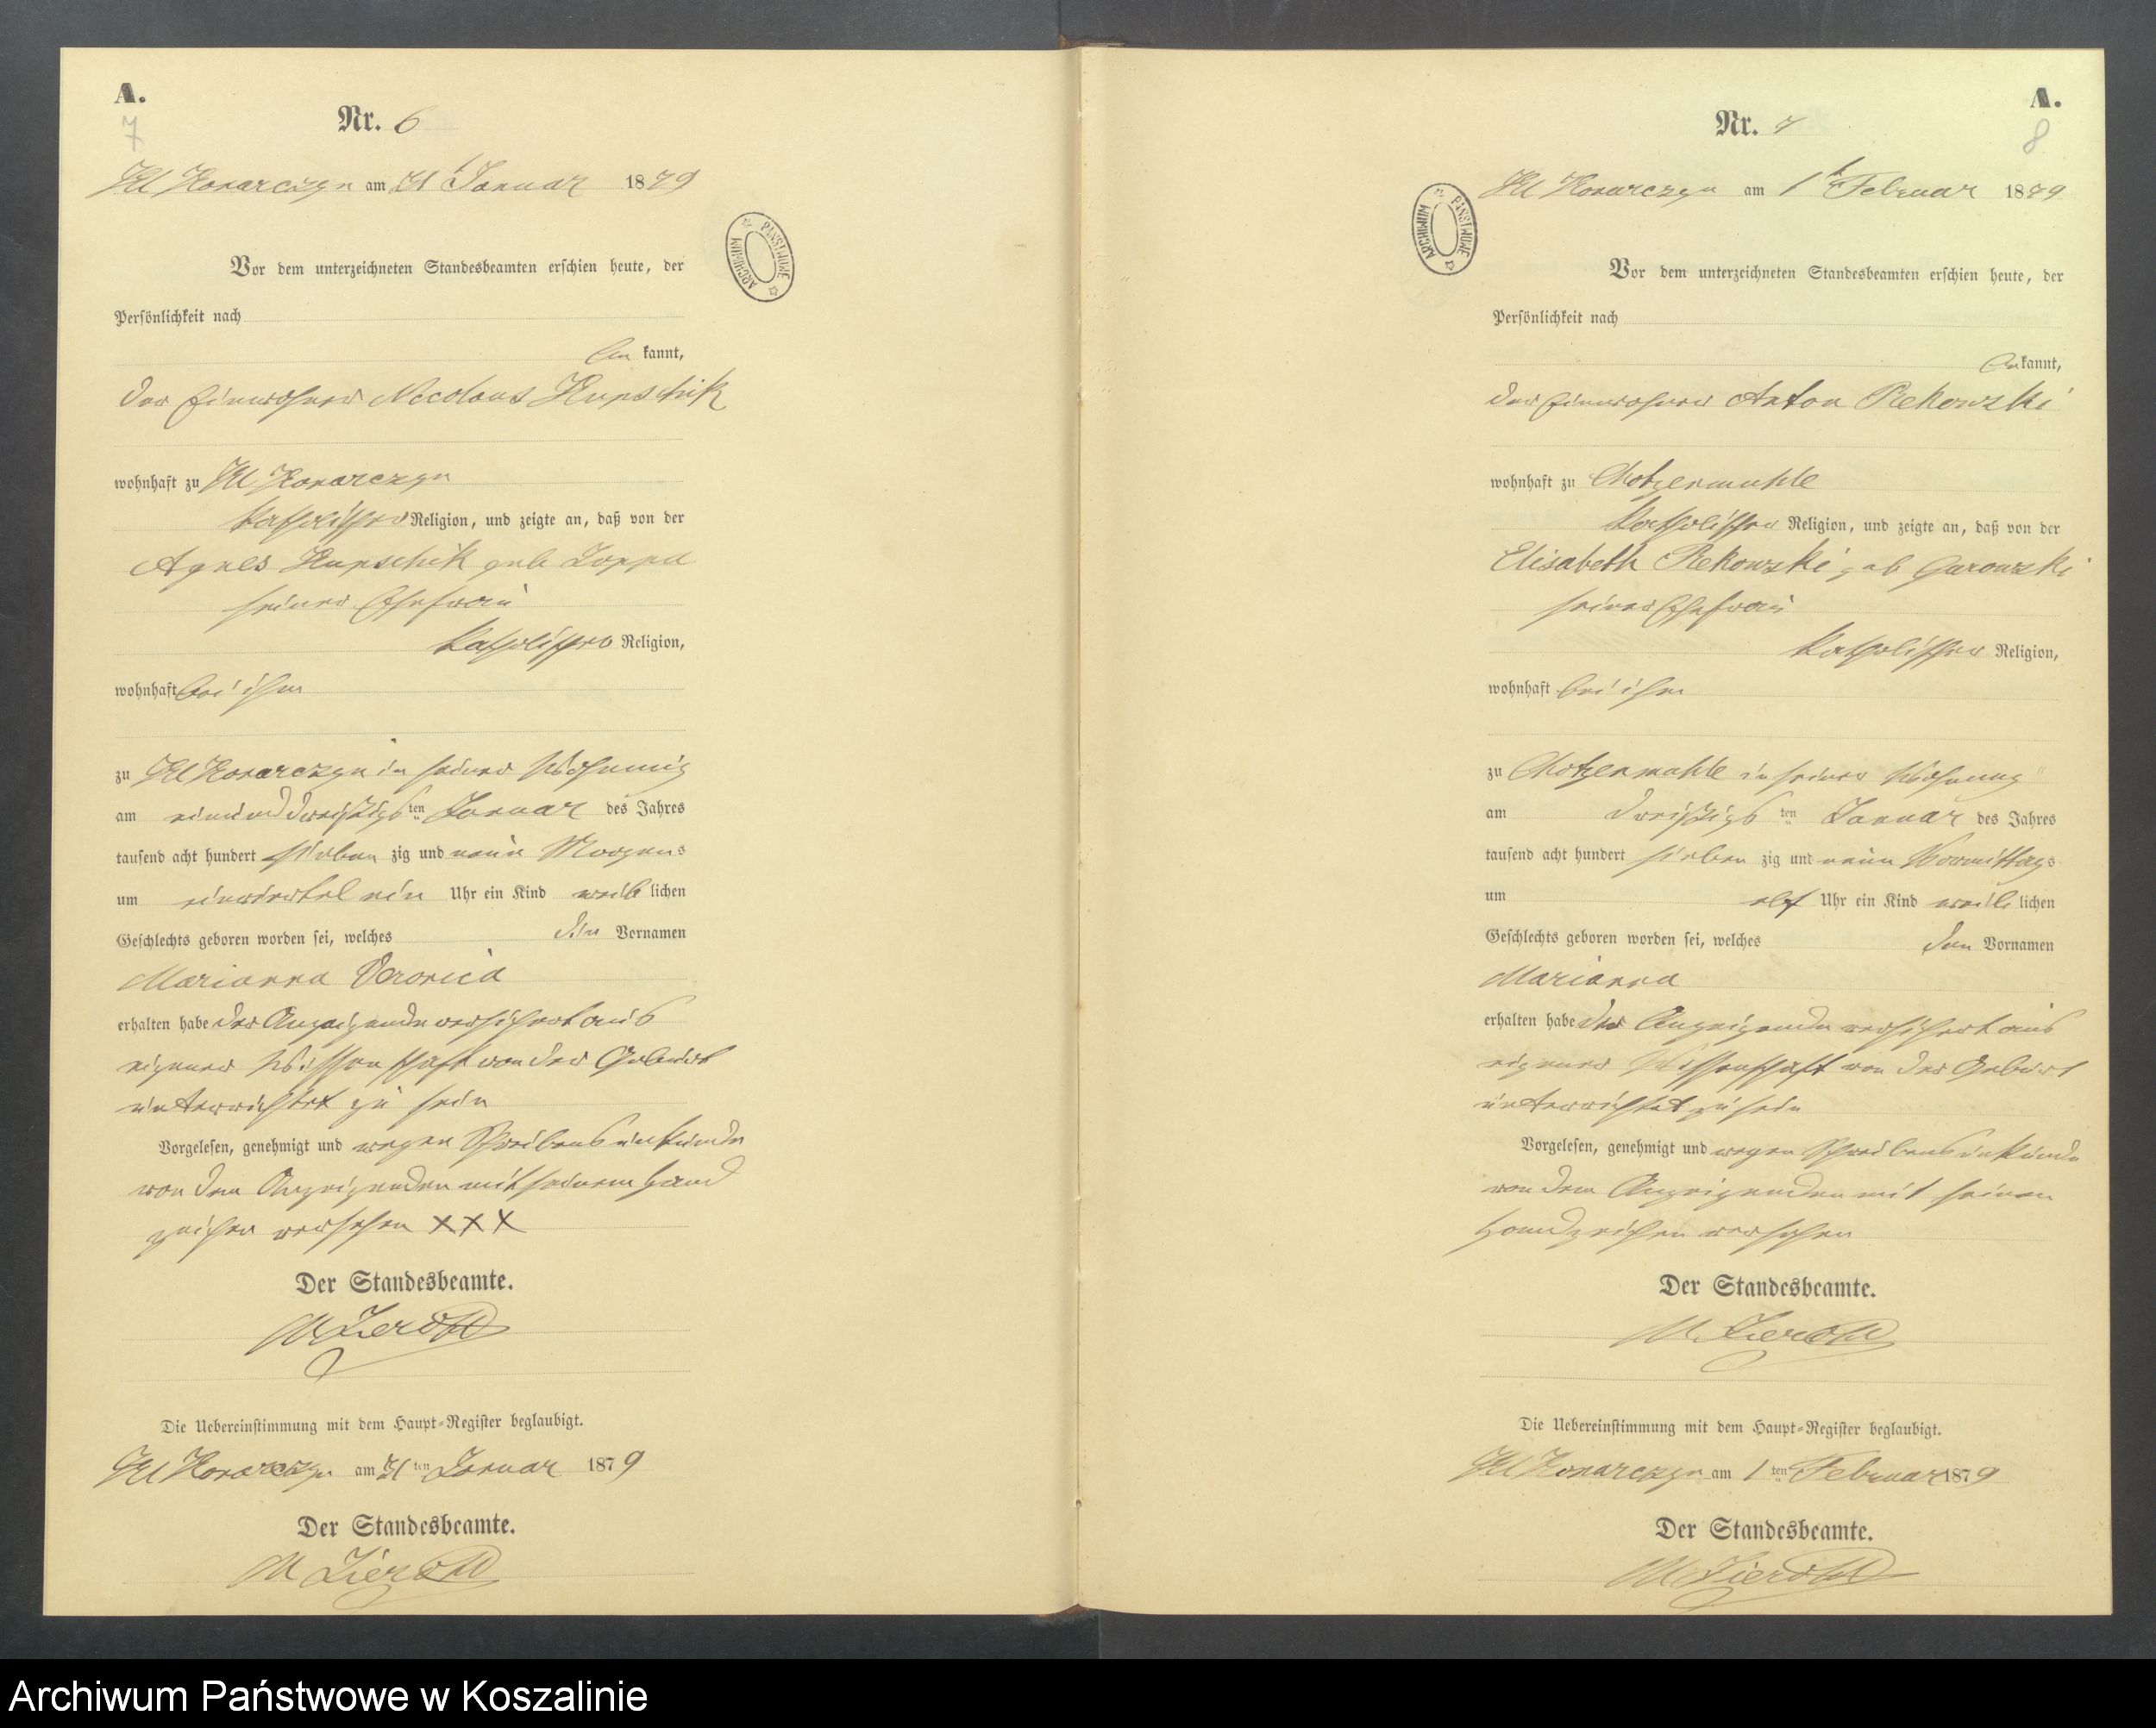 A.
7
Nr. 6
Kl Konarczyn am 31t Januar 1879
ARCHIWUM PAŃSTWOWE
Vor dem unterzeichneten Standesbeamten erschien heute, der
Persönlichkeit nach
be kannt,
der Einwohner Nicolaus Kupschik
wohnhaft zu Kl Konarczyn
katholischer Religion, und zeigte an, daß von der
Agnes Kupschik geb Loppa
seiner Ehefrau
katholischer Religion,
wohnhaft bei ihm
zu Kl Konarczyn in seiner Wohnung
am einunddreißigsten Januar des Jahres
tausend acht hundert sieben zig und neun Morgens
um einviertel ein Uhr ein Kind weib lichen
Geschlechts geboren worden sei, welches die Vornamen
Marianna Veronica
erhalten habe der Anzeigende versichert aus
eigener Wissenschaft von der Geburt
unterrichtet zu sein
Vorgelesen, genehmigt und wegen Schreibensunkunde
von dem Anzeigenden mit seinem Hand
zeichen versehen XXX
Der Standesbeamte.
M
Die Uebereinstimmung mit dem Haupt-Register beglaubigt.
Kl Konarczyn am 31 ten Januar 1879
Der Standesbeamte.
M
A.
8
Nr. 7
Kl Konarczyn am 1t Februar 1879
ARCHIWUM PAŃSTWOWE
Vor dem unterzeichneten Standesbeamten erschien heute, der
Persönlichkeit nach
be kannt,
der Einwohner Anton Rekowski
wohnhaft zu Chotzenmühle
katholischer Religion, und zeigte an, daß von der
Elisabeth Rekowski geb
seiner Ehefrau
katholischer Religion,
wohnhaft bei ihm
zu Chotzenmühle in seiner Wohnung
am dreißigsten Januar des Jahres
tausend acht hundert sieben zig und neun Vormittags
um elf Uhr ein Kind weib lichen
Geschlechts geboren worden sei, welches den Vornamen
Marianna
erhalten habe der Anzeigende versichert aus
eigener Wissenschaft von der Geburt
unterrichtet zu sein
Vorgelesen, genehmigt und wegen Schreibensunkunde
von dem Anzeigenden mit seinem
Handzeichen versehen
Der Standesbeamte.
M
Die Uebereinstimmung mit dem Haupt-Register beglaubigt.
Kl Konarczyn am 1 ten Februar 1879
Der Standesbeamte.
M
Archiwum Państwowe w Koszalinie